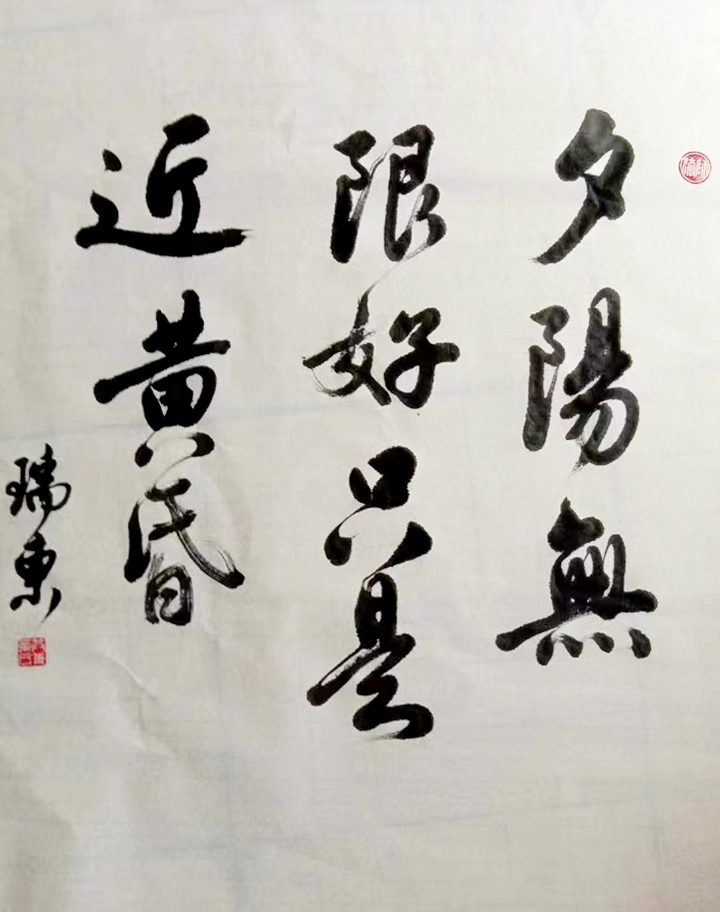 夕陽無
限好只是
近黄昏
瑞東